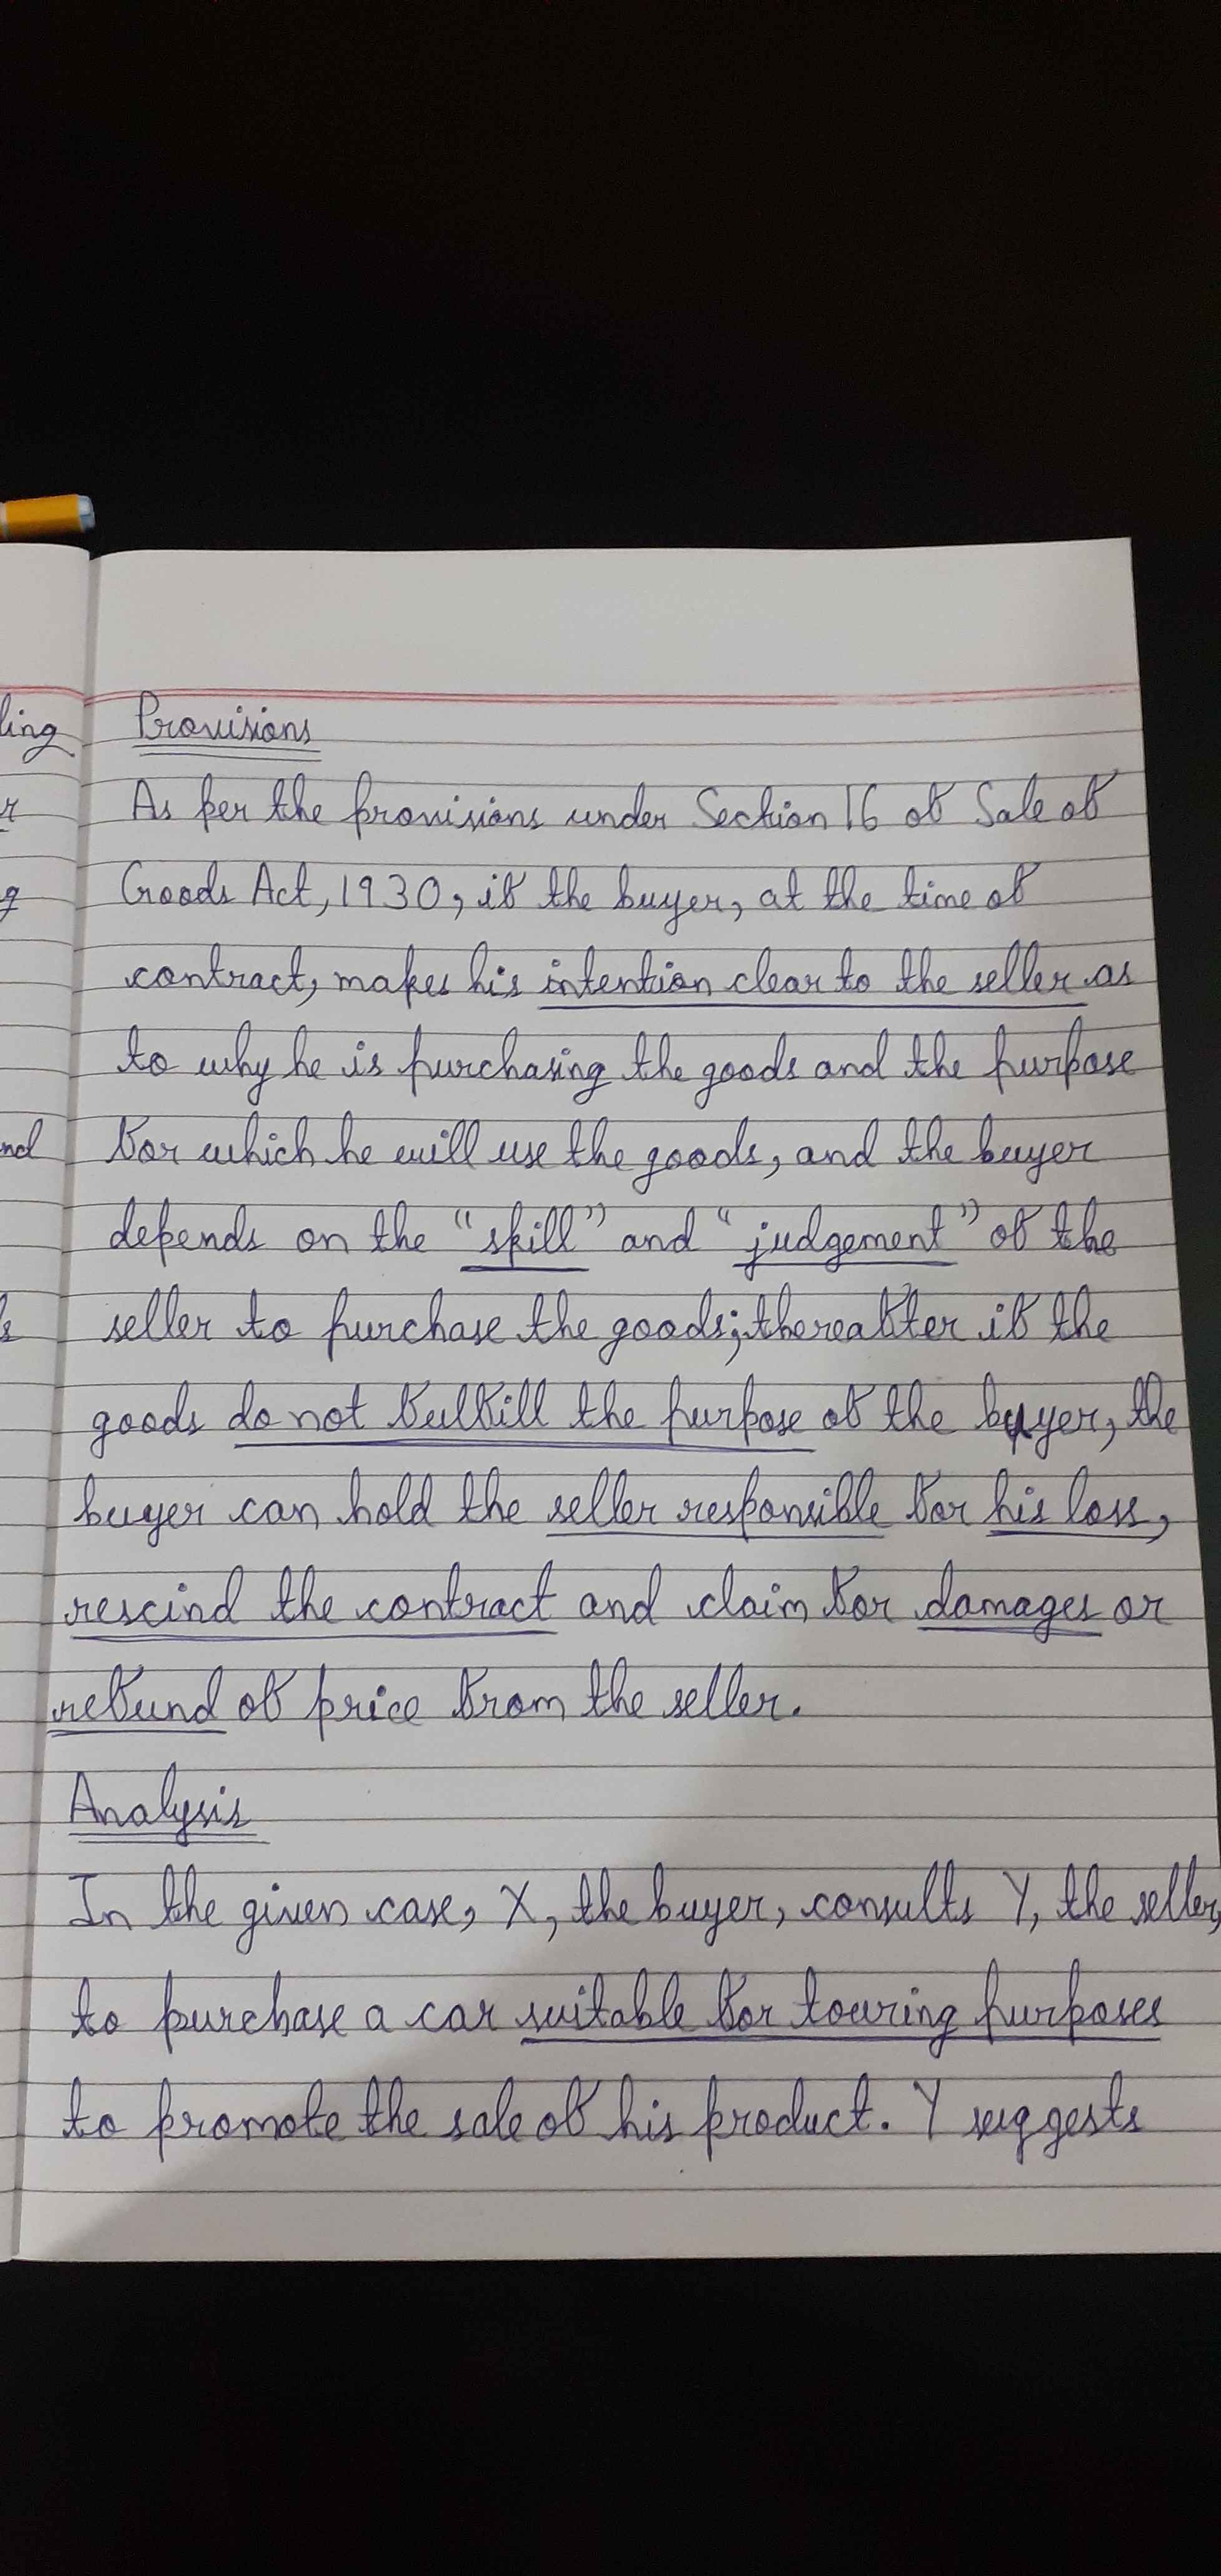 ling
Provisions
r
As per the provisions under Section 16 of Sale of
g
Goods Act, 1930, if the buyer, at the time of
contract, makes his intention clear to the seller as
to why he is purchasing the goods and the purpose
nd
for which he will use the goods, and the buyer
depends on the "skill" and "judgement" of the
seller to purchase the goods; thereafter if the
goods do not fulfill the purpose of the buyer, the
buyer can hold the seller responsible for his loss,
rescind the contract and claim for damages or
refund of price from the seller.
Analysis
In the given case, X, the buyer, consults Y, the seller,
to purchase a car suitable for touring purposes
to promote the sale of his product. Y suggests